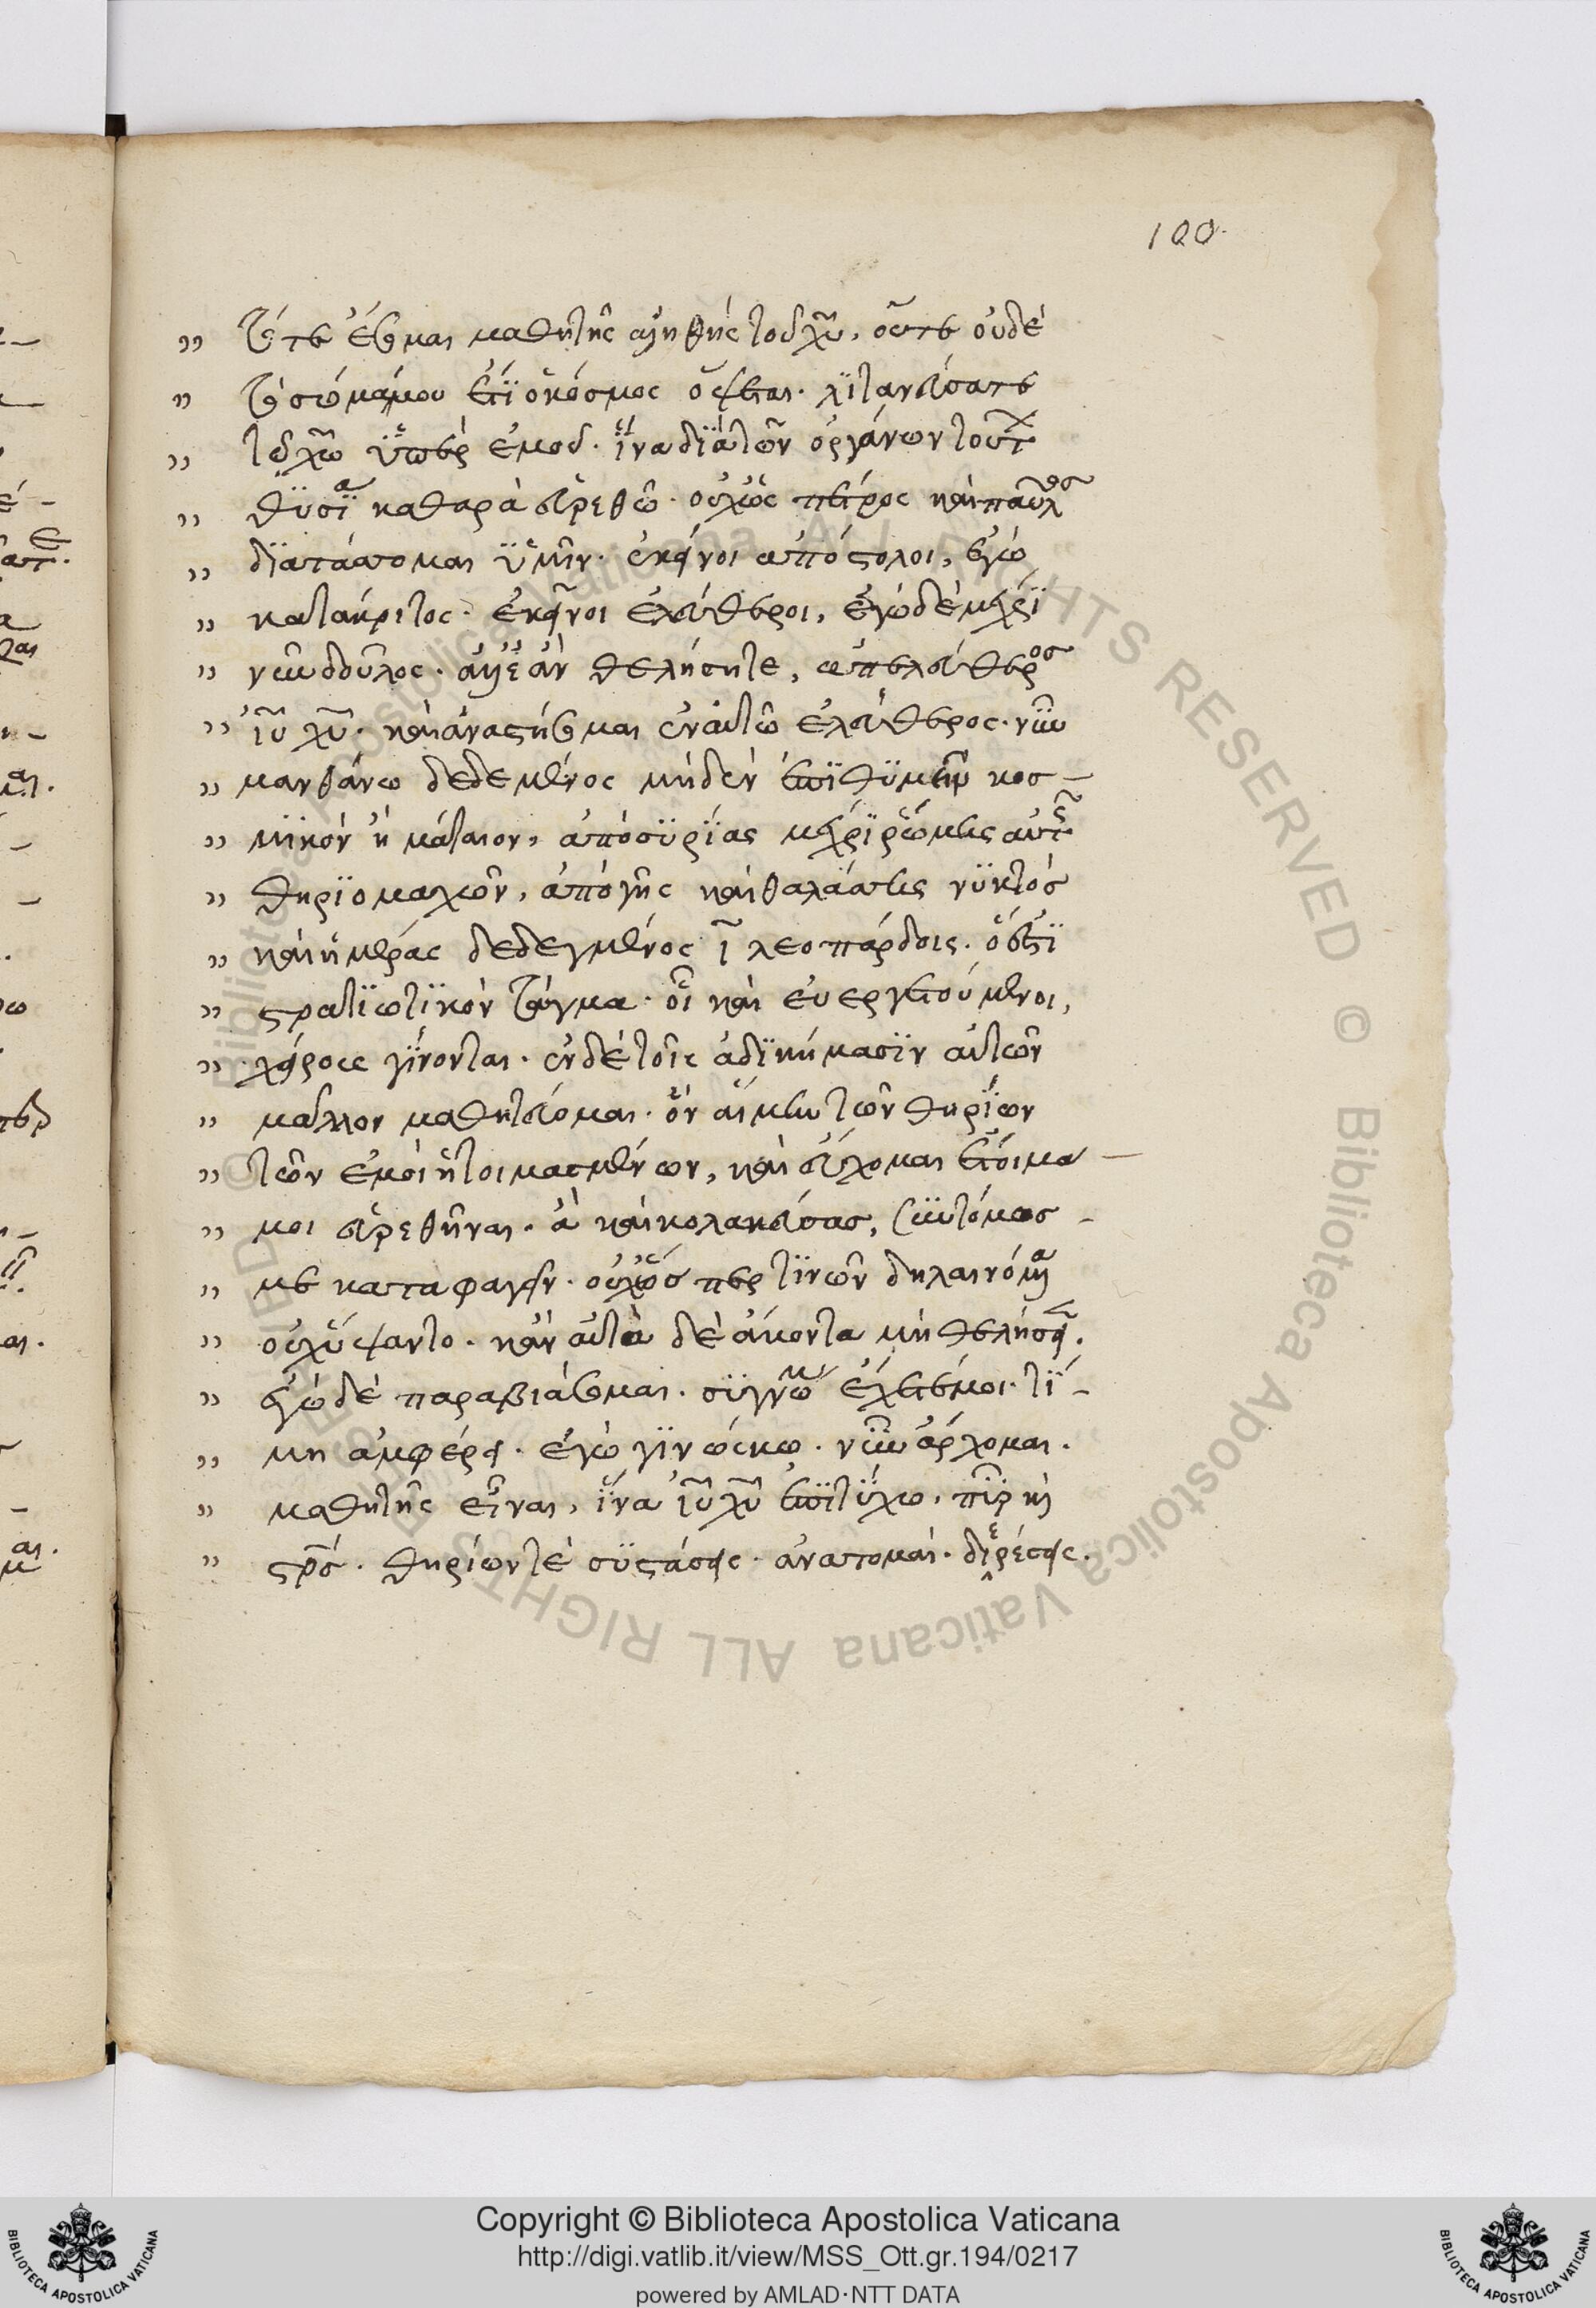 100.
τότε ἔσομαι μαθητὴς ἀληθὴς τοῦ χῦ, ὅτε οὐδὲ
τὸ σῶμά μου ἔτι ὁ κόσμος ὄψεται. λιτανεύσατε
τῷ χῶ ὑπὲρ ἐμοῦ. ἵνα διὰ τῶν ὀργάνων τούτ
θυσία καθαρὰ εὑρεθῶ. οὐχ ὡς πέτρος καὶ παῦλος
διατάσσομαι ὑμῖν. ἐκεῖνοι ἀπόστολοι, ἐγὼ
κατάκριτος. ἐκεῖνοι ἐλεύθεροι, ἐγὼ δὲ μέχρι
νῦν δοῦλος. ἀλλ' ἐὰν θελήσητε, ἀπελεύθερος
ἰῦ χῦ. καὶ ἀναστήσομαι ἐν αὐτῶ ἐλεύθερος. νῦν
μανθάνω δεδεμένος μηδὲν ἐπιθυμεῖν κοσ–
μικὸν ἢ μάταιον, ἀπὸ συρίας μέχρι ῥώμης αὐτῆς
θηριομαχῶν, ἀπὸ γῆς καὶ θαλάσσης νυκτὸς
καὶ ἡμέρας δεδεγμένος ῑ λεοπάρδοις. ὅ ἐστι
στρατιωτικὸν τάγμα. οἳ καὶ εὐεργετούμενοι,
χείρους γίνονται. ἐν δὲ τοῖς ἀδικήμασιν αὐτῶν
μᾶλλον μαθητεύομαι. ὀναίμην τῶν θηρίων
τῶν ἐμοὶ ἡτοιμασμένων, καὶ εὔχομαι ἕτοιμα –
μοι εὑρεθῆναι. ἃ καὶ κολακεύσας, συντόμως –
με καταφαγεῖν. οὐχ ὥσπερ τινῶν
οὐχ ἥψαντο. κἂν αὐτὰ δὲ ἄκοντα μὴ θελήσει.
ἐγὼ δὲ παραβιάσομαι. συγγνώμ ἔχετέ μοι. τί –
μη συμφέρει. ἐγὼ γινώσκω. νῦν ἄρχομαι.
μαθητὴς εἶναι, ἵνα ἰῦ χῦ ἐπιτύχω. πῦρ καὶ
στρός. θηρίων τὲ συστάσεις. ἀνατομαί. διερέσεις.
Copyright © Biblioteca Apostolica Vaticana
http://digi.vatlib.it/view/MSS_Ott.gr.194/0217
powered by AMLAD·NTT DATA